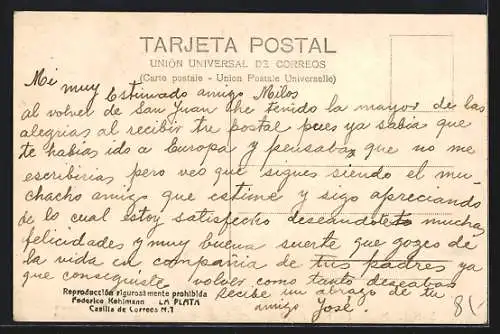 TARJETA POSTAL
UNIÓN UNIVERSAL DE CORREOS
(Carte postale - Union Postale Universelle)
Mi muy Estimado amigo Milos
al volver de San Juan he tenido la mayor de las
alegrias al recibir tu postal pues ya sabia que
te habias ido a Europa y pensaba que no me
escribirias pero veo que sigues siendo el mu
chacho amigo que estime y sigo apreciando
de lo cual estoy satisfecho deseandote muchas
felicidades y muy buena suerte que gozes de
la vida en compañia de tus padres ya
que conseguiste volver como tanto deseabas
Recibe un abrazo de tu
amigo José.
Reproducción rigurosamente prohibida
Federico Kohlmann LA PLATA
Casilla de Correos N.º 1
8/